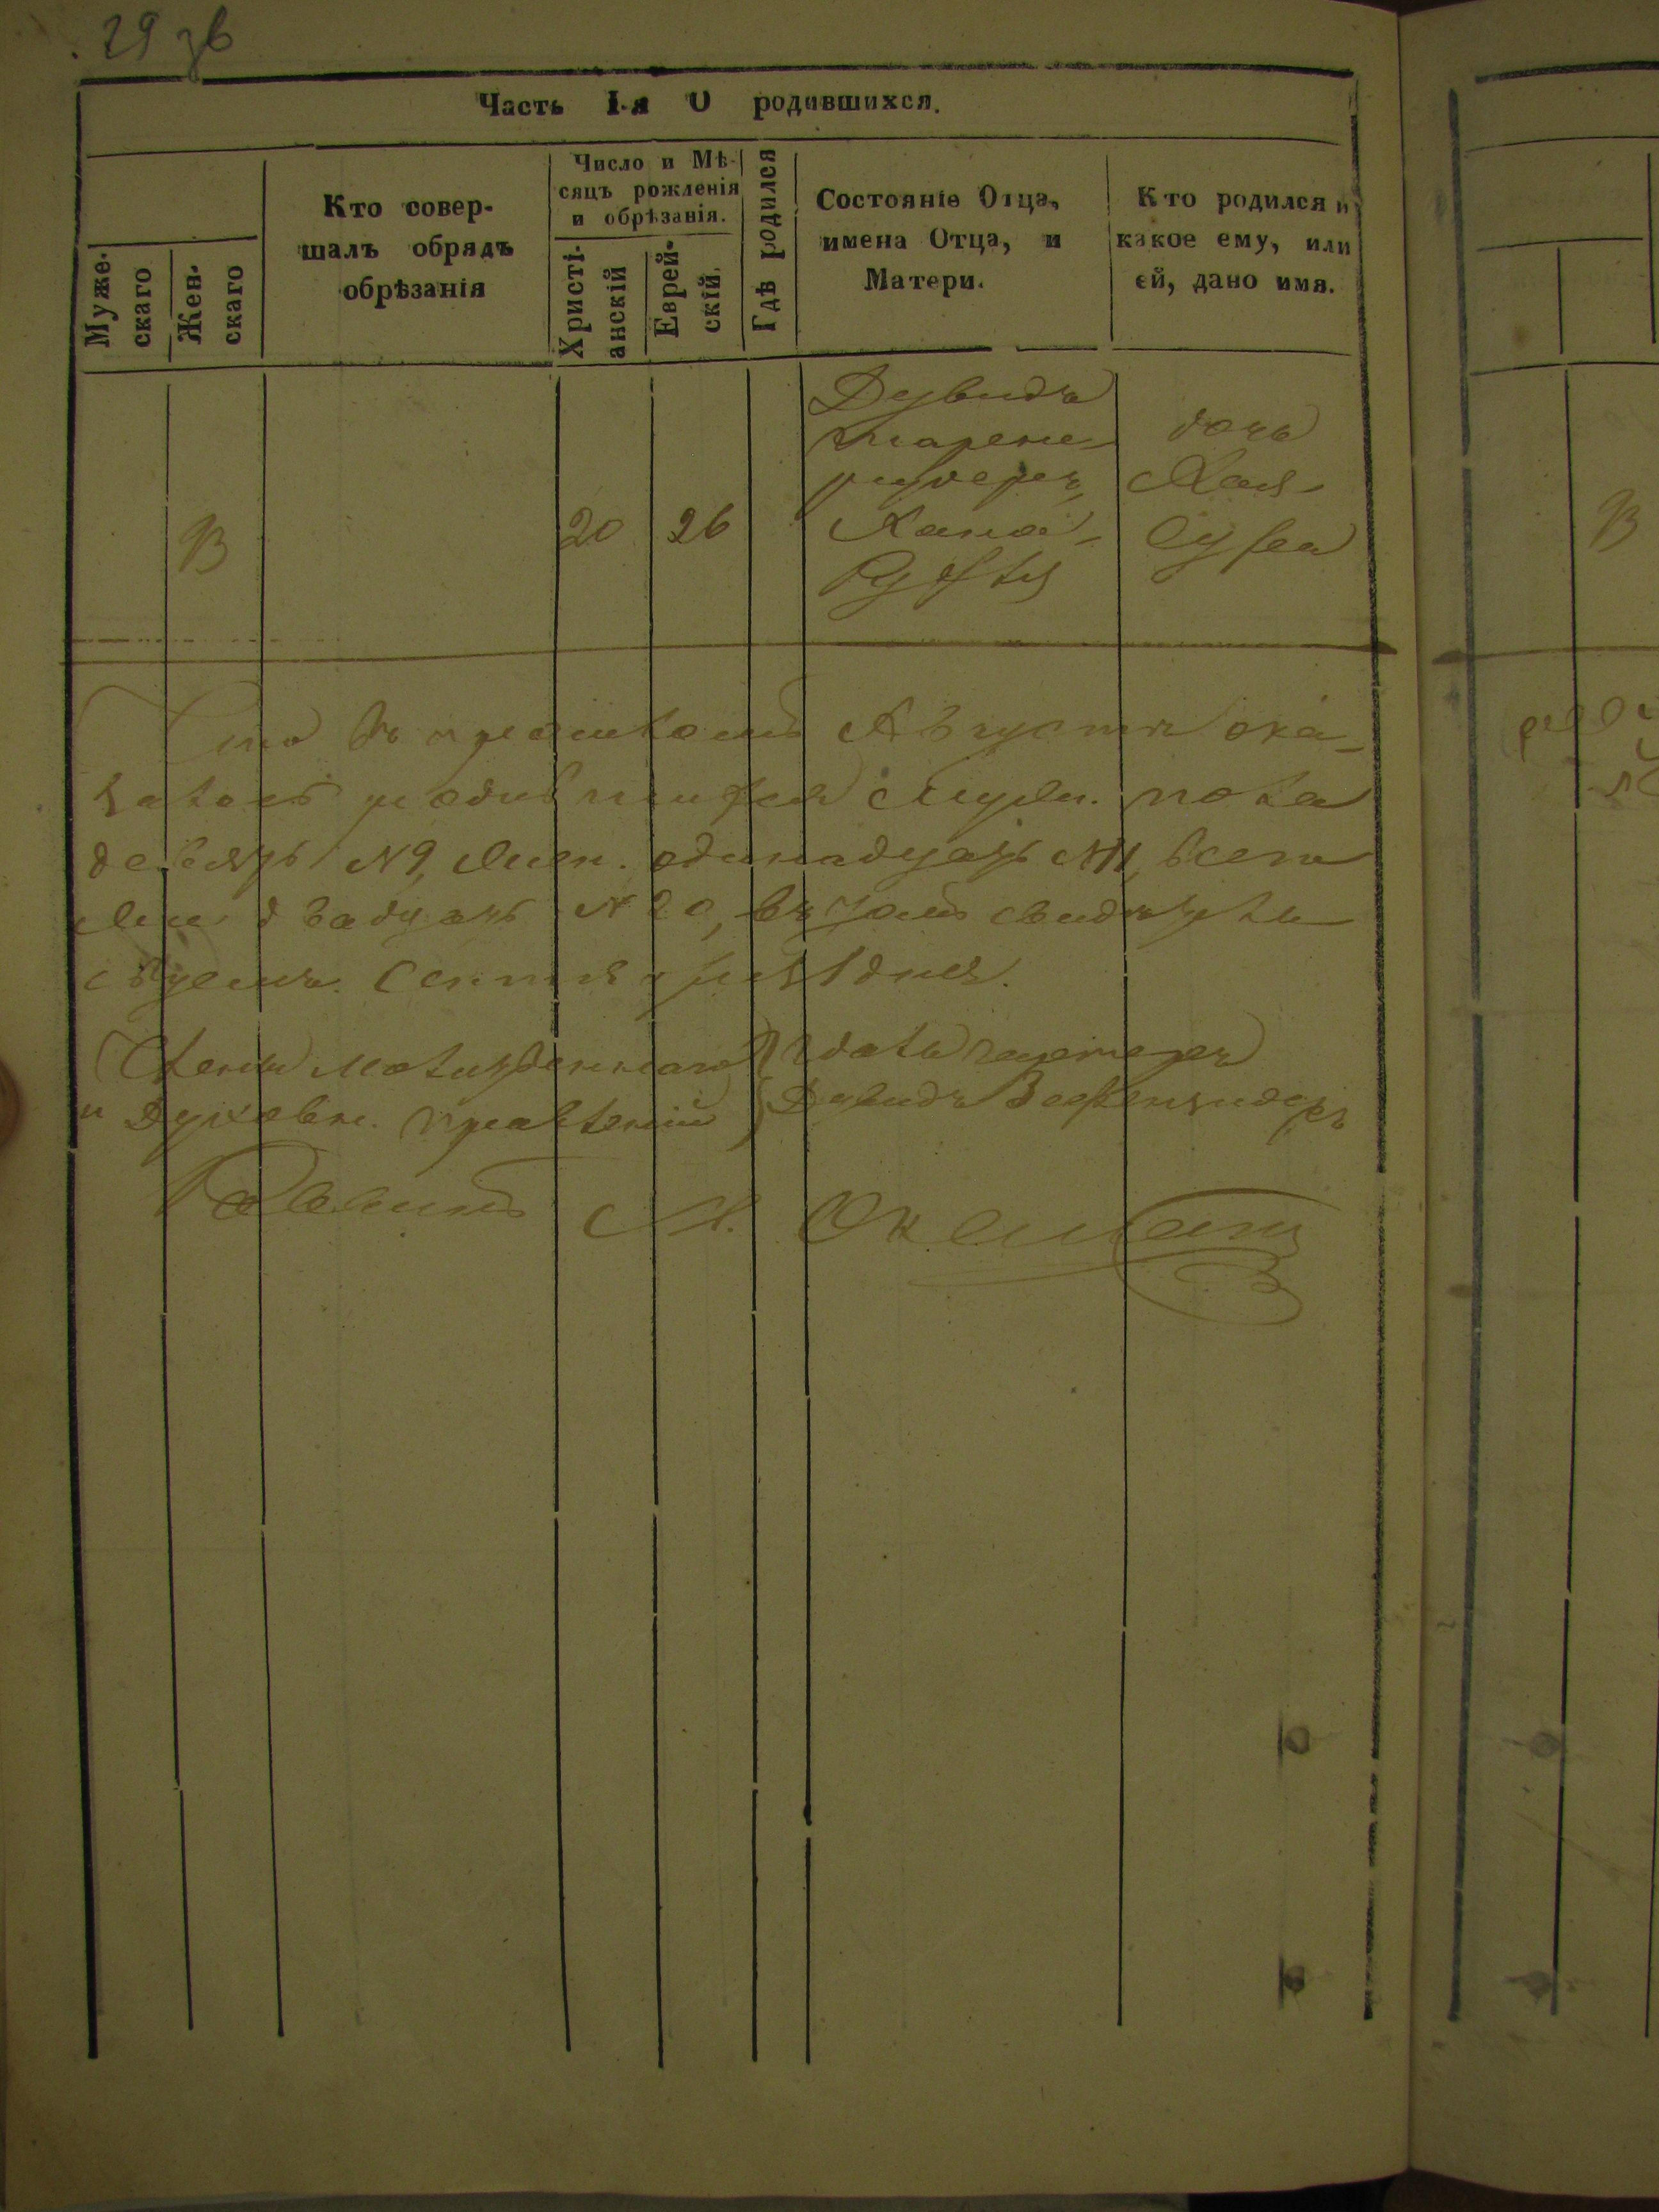 29 зв
Часть I-я О родившихся.
Муже-
скаго
Жен-
скаго
Кто совер-
шалъ обрядъ
обрѣзанія
Число и Мѣ-
сяцъ рожденія
и обрѣзанія.
Христі-
анскій
Еврей-
скій.
Гдѣ родился
Состояніе Отца,
имена Отца, и
Матери.
Кто родился и
какое ему, или
ей, дано имя.
20 26
Дувидъ
Хана
дочь
Хая
Сура
Что въ прошломъ Августѣ ока-
залось родившихся Муж. пола
девять №9, Жен. одинадцать №11, всего
двадцать №20, въ томъ свидѣтель-
ствуемъ. Сентября 1 дня.
Члены Молитвеннаго
и Духовн. правленій
Давидъ
Раввинъ М.